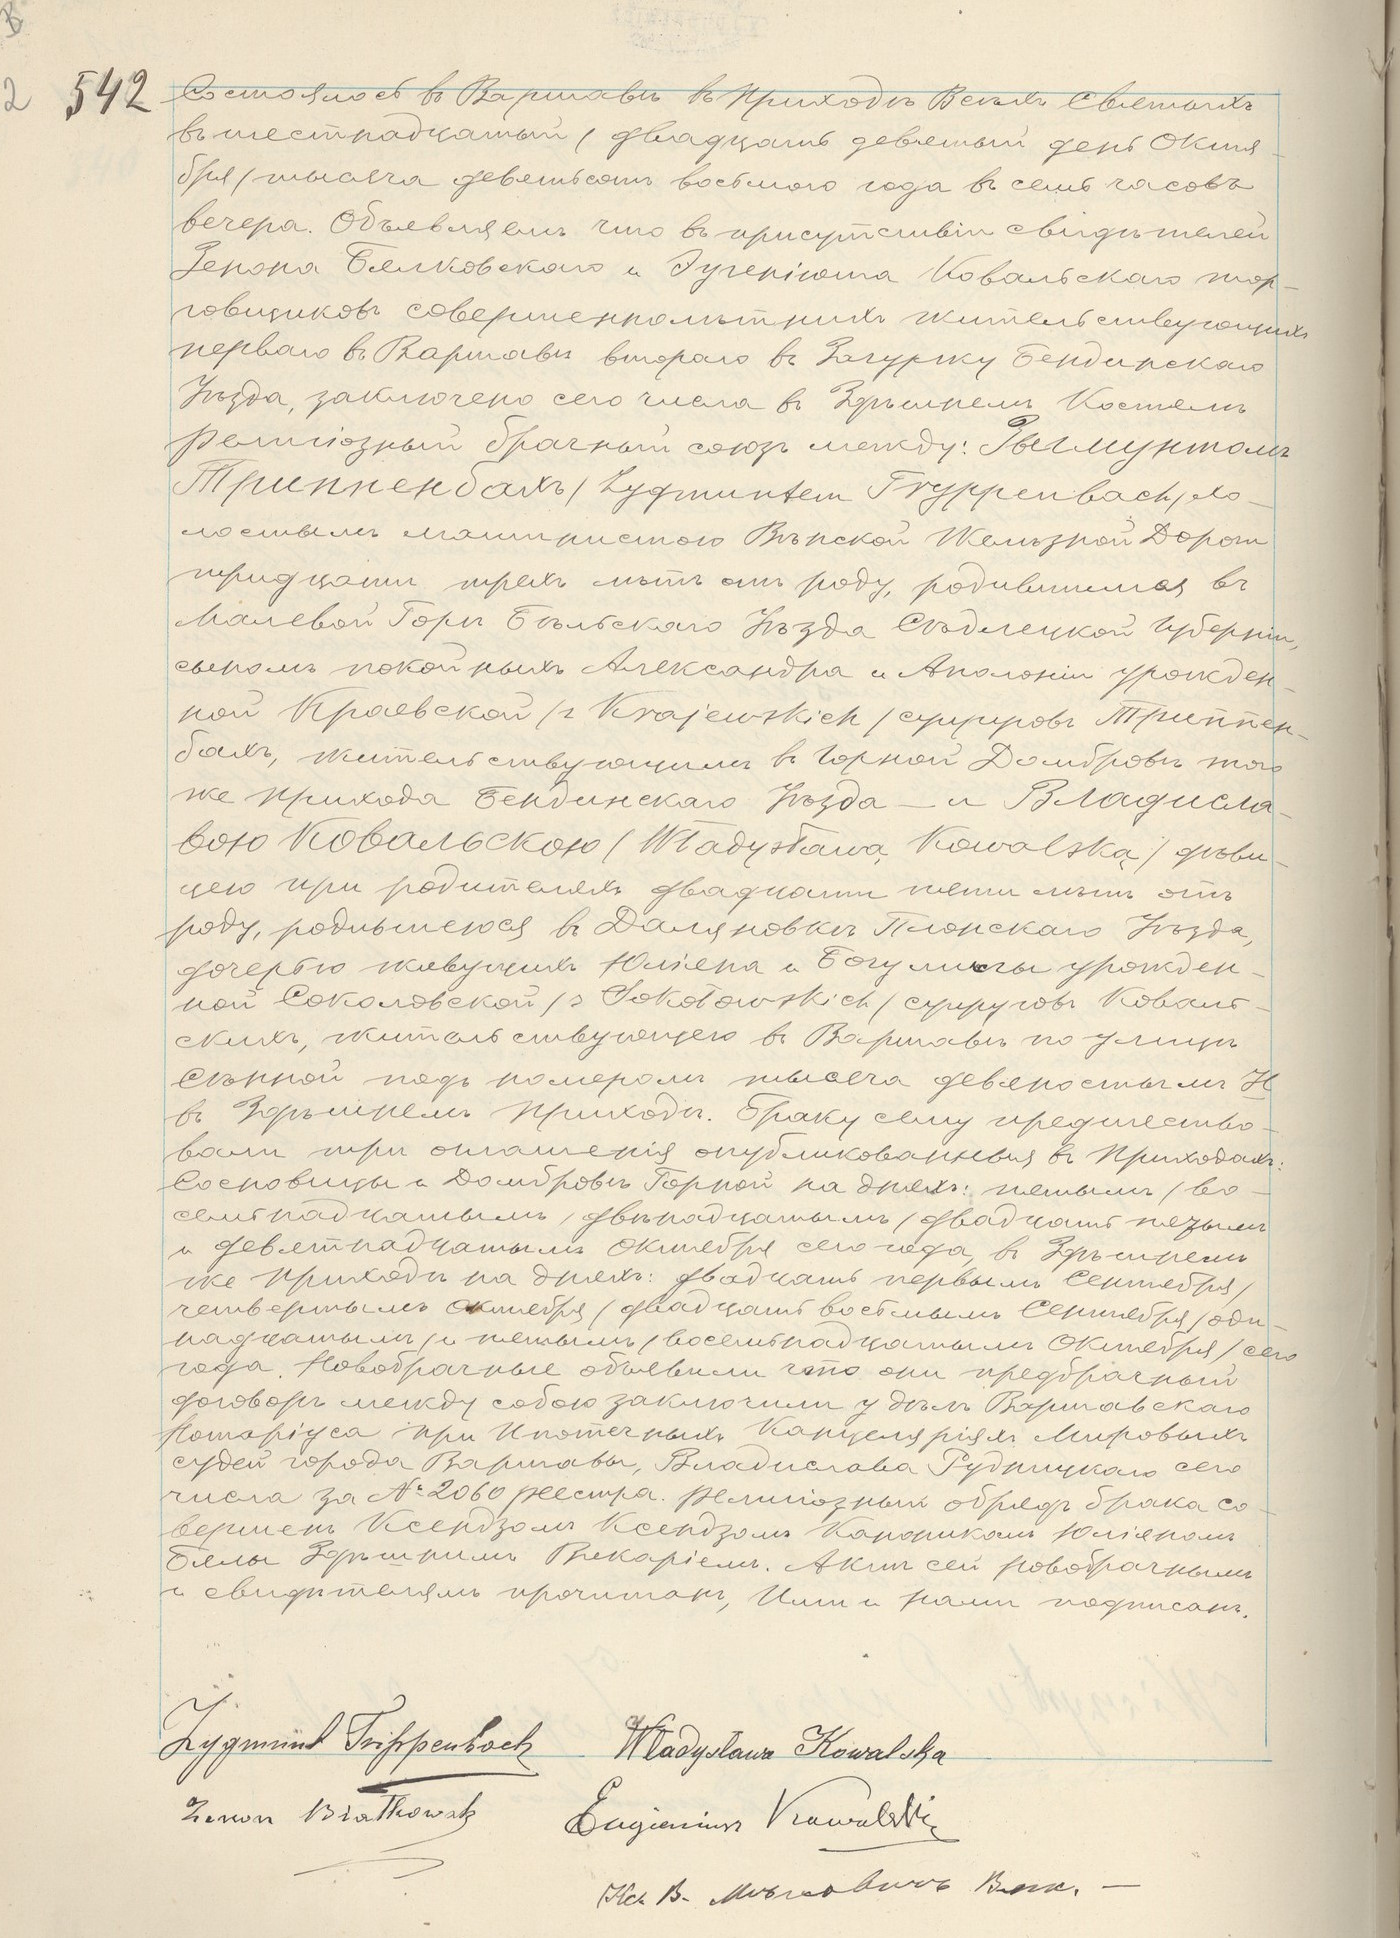 542
Состоялось въ Варшавѣ въ приходѣ Всѣхъ Святыхъ
въ шестнадцатый / двадцать девятый день Октя-
бря / тысяча девятьсотъ восьмого года въ семь часовъ
вечера. Объявляемъ что въ присутствіи свидѣтелей
Зенона Бялковскаго и Эугеніюша Ковальскаго тор-
говщиковъ совершеннолѣтнихъ жительствующихъ
перваго въ Варшавѣ второго въ Загуржу Бендинскаго
Уѣзда, заключено сего числа въ Здѣшнемъ Костелѣ
религіозный брачный союзъ между: Зыгмунтомъ
Триппенбахъ / Zygmuntem Tryppenbach / хо-
лостымъ машинистою Вѣнской Желѣзной Дороги
тридцати трехъ лѣтъ отъ роду, родившимся въ
Малевой Горѣ Бѣльскаго Уѣзда Сѣдлецкой Губерніи,
сыномъ покойныхъ Александра и Аполоніи урожден-
ной Краевской / z Krajewskich / супруговъ Триппен-
бахъ, жительствующимъ въ Горной Домбровѣ того
же прихода Бендинскаго Уѣзда — и Владисла-
вою Ковальскою / Władysławą Kowalską / дѣви-
цею при родителяхъ двадцати пяти лѣтъ отъ
роду, родившеюся въ Далановкѣ Плонскаго Уѣзда,
дочерью живущихъ Юліена и Богумилы урожден-
ной Соколовской / z Sokołowskich / супруговъ Коваль-
скихъ, жительствующею въ Варшавѣ по улицѣ
Сѣнной подъ номеромъ тысяча девяностымъ Н
въ Здѣшнемъ приходѣ. Браку сему предшество-
вали три оглашенія опубликованныя въ Приходахъ:
Сосновицы и Домбровѣ Горной на дняхъ: пятымъ / во-
семнадцатымъ / двѣнадцатымъ / двадцать пятымъ
и девятнадцатымъ Октября сего года, въ Здѣшнемъ
же приходѣ на дняхъ: двадцать первымъ Сентября /
четвертымъ Октября / двадцать восьмымъ Сентября / оди-
надцатымъ / и пятымъ / восемнадцатымъ Октября / сего
года. Новобрачные объявили что они предбрачный
договоръ между собою заключили у дѣлъ Варшавскаго
Нотаріуса при Ипотечныхъ Канцеляріяхъ Мировыхъ
судей города Варшавы, Владислава Рудницкаго сего
числа за № 2060 реестра. Религіозный обрядъ брака со-
вершенъ Ксендзомъ Ксендзомъ Каноникомъ Юліяномъ
Бялы Здѣшнимъ Викаріемъ. Актъ сей новобрачнымъ
и свидѣтелямъ прочитанъ, Ими и Нами подписанъ.
Zygmunt Trippenbach Władysława Kowalska
Zenon Białkowski Eugieniusz Kowalski
Кс. В. Вик. —